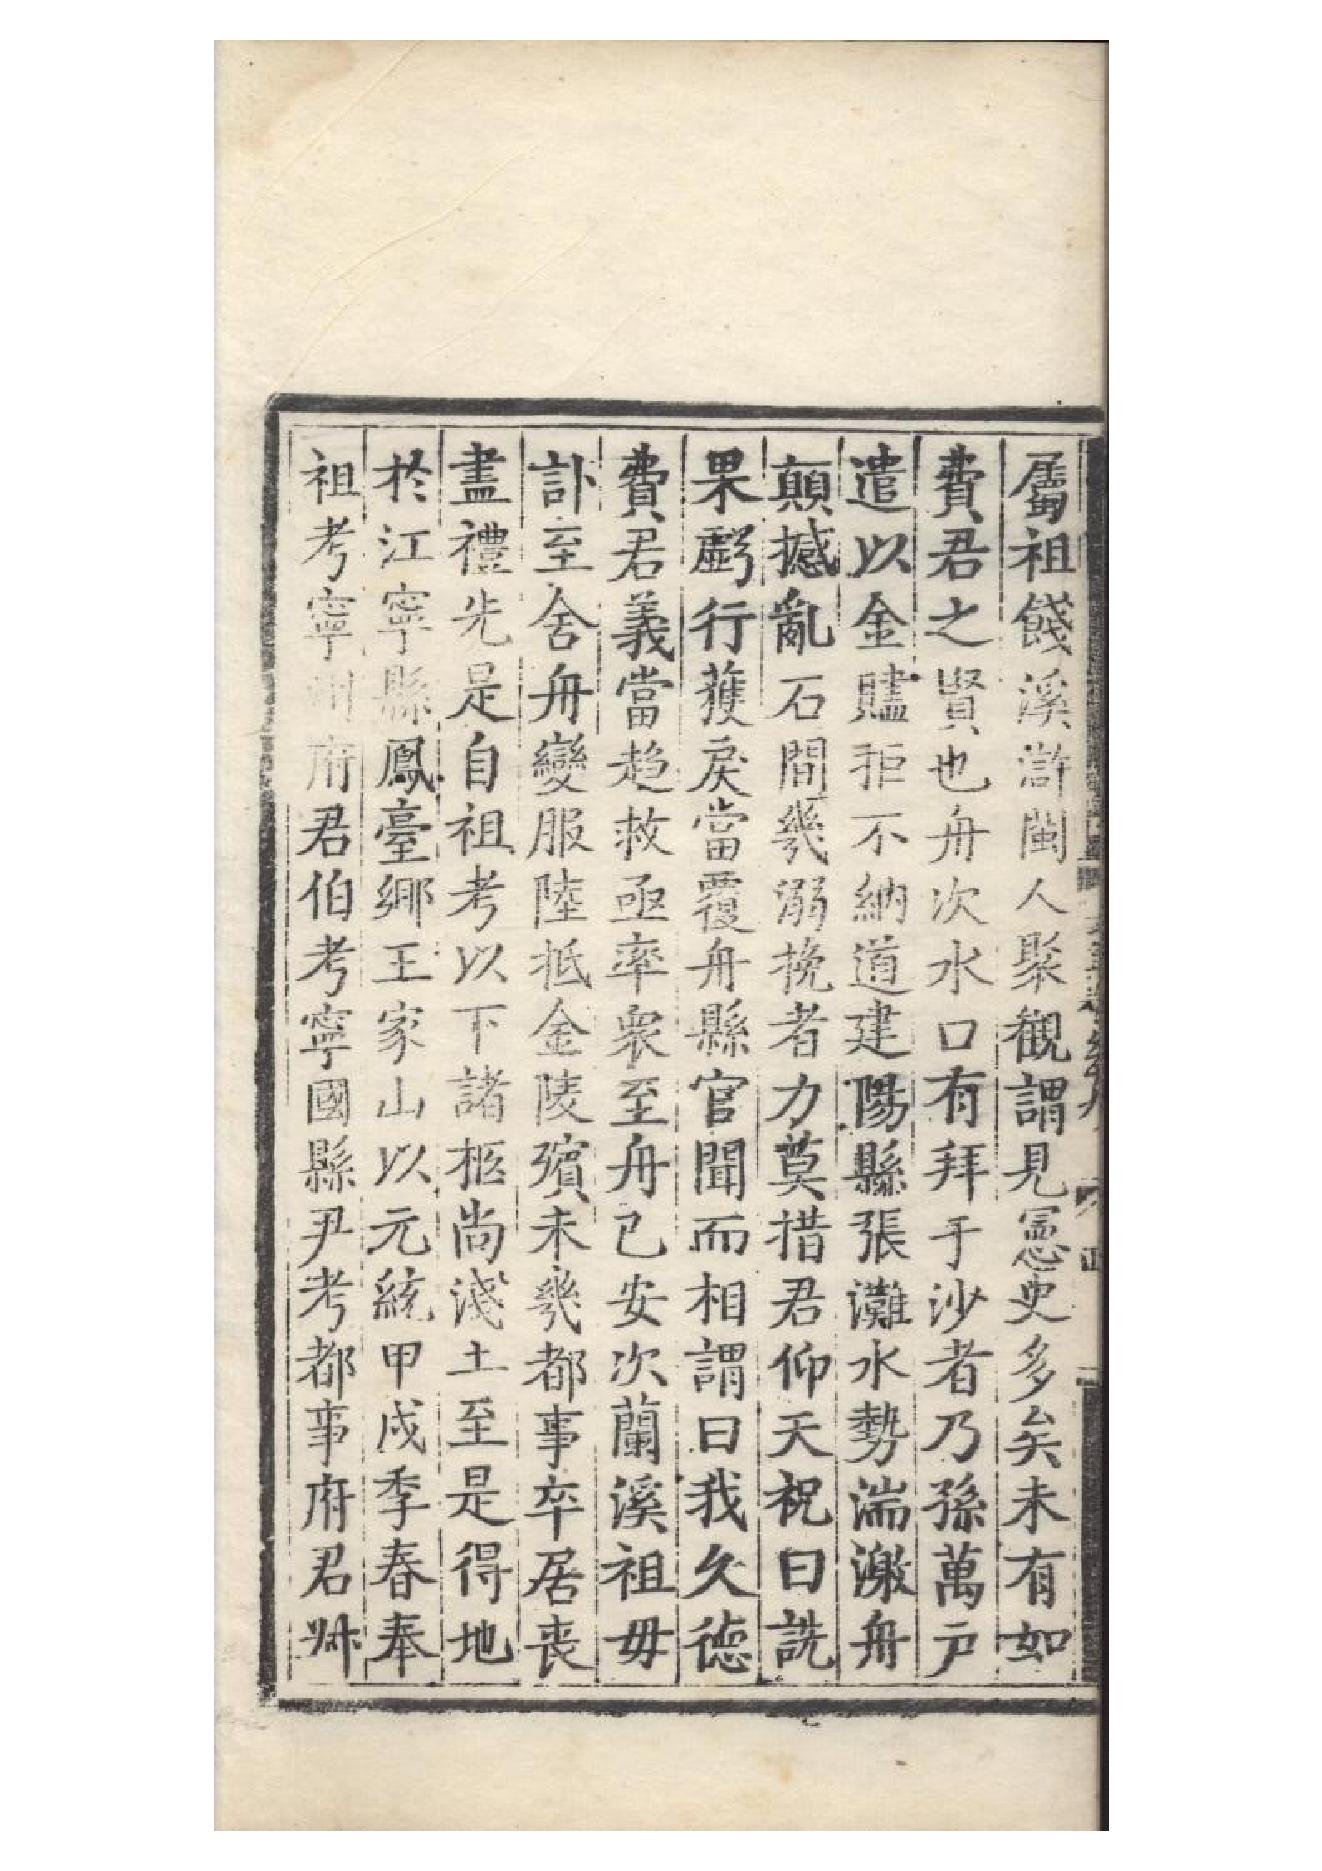 屬祖餞溪滸閩人聚觀謂見憲史多矣未有如
費君之賢也舟次水口有拜于沙者乃孫萬戸
遣以金贐拒不納道建陽縣張灘水勢湍激舟
顛撼亂石間幾溺挽者力莫措君仰天祝曰詵
果虧行獲戾當覆舟縣官聞而相謂曰我久德
費君義當趋救亟率衆至舟已安次蘭溪祖毋
訃至舍舟變服陸抵金陵殯未幾都事卒居喪
盡禮先是自祖考以下諸柩尚淺土至是得地
於江寧縣鳳臺鄉王家山以元統甲戌季春奉
祖考寧州府君伯考寧國縣尹考都事府君